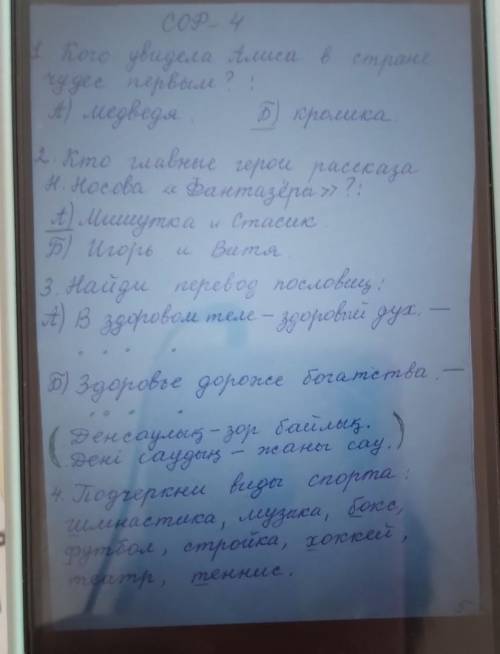 СОР-4
1. Кого увидела Алиса в стране
чудес первым? :
А) медведя. Б) кролика.
2. Кто главные герои рассказа
Н. Носова «Фантазёры»?:
А) Мишутка и Стасик.
Б) Игорь и Витя.
3. Найди перевод пословиц:
А) В здоровом теле – здоровый дух. —
. . . .
Б) Здоровье дороже богатства. —
. . . .
(Денсаулық – зор байлық.
Дені саудың – жаны сау.)
4. Подчеркни виды спорта:
гимнастика, музыка, бокс,
футбол, стройка, хоккей,
театр, теннис.